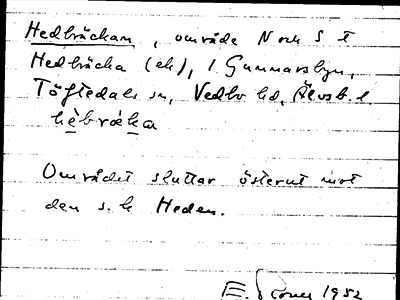 Hedbräckan, område N och S t
Hedbräcka (eh), i Gunnarsbyn,
Töftedals sn, Vedbo hd, Älvsb. l.
hèbrákа
Området sluttar österut mot
den s. k Heden.
E. 1952